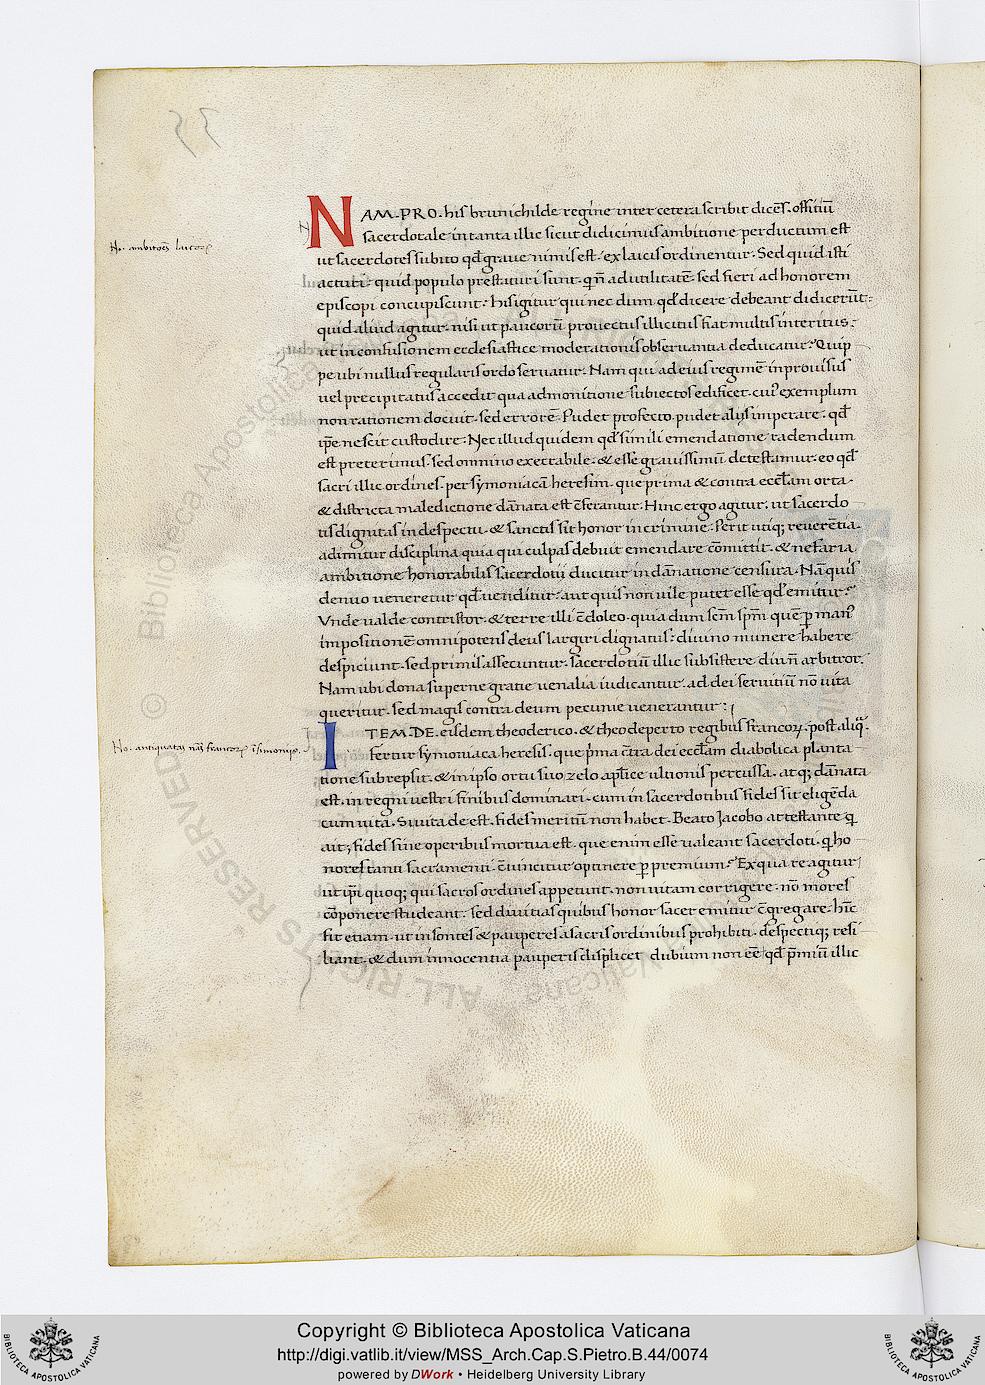 35
NAM. PRO. his brunichilde regine inter cetera scribit dicēs. offitiū
sacerdotale in tanta illic sicut didicimus ambitione perductum est
No. ambitōes laicoꝝ
ut sacerdotes subito qđ graue nimis est. ex laicis ordinentur. Sed quid isti
acturi. quid populo prestaturi sunt. qͥ nō ad utilitatē. sed fieri ad honorem
episcopi concupiscunt. hi sigitur qui nec dum qđ dicere debeant didicerūt.
quid aliud agitur. nisi ut paucorū prouectus illicitus fiat multis interitus.
ut in confusionem ecclesiastice moderationis obseruantia deducatur. Quip
pe ubi nullus regularis ordo seruatur. Nam qui ad eius regimē inprouisus
uel precipitatus accedit qua admonitione subiectos edificet. cuiꝰ exemplum
non rationem docuit. sed errorē. Pudet profecto pudet aliis imperare. qđ
ip̄e nescit custodire. Nec illud quidem qđ simili emendatione radendum
est preterimus. sed omnino execrabile. & esse grauissimū detestamur. eo qđ
sacri illic ordines. per symoniacā heresim. que prima & contra eccl̄am orta.
& districta maledictione dānata est c̄ferantur. Hinc ergo agitur. ut sacerdo
tis dignitas in despectu. & sanctis sit honor in crimine. Perit utiq; reuerētia.
adimitur disciplina quia qui culpas debuit emendare cōmittit. & nefaria
ambitione honorabilis sacerdotii ducitur in dānatione censura. Nā quis
denuo ueneretur qđ uenditur. aut quis non uile putet esse qđ emitur?
Vnde ualde contristor. & terre illi c̄doleo. quia dum sc̄m sp̄m quē p manꝰ
impositionē omnipotens deus largiri dignatus. diuino munere habere
despiciunt. sed primis assecuntur. sacerdotiū illic subsistere diu nō arbitror.
Nam ubi dona superne gratie uenalia iudicantur. ad dei seruitiū nō uita
queritur. sed magis contra deum pecunie uenerantur.
ITEM. DE. eisdem theoderico. & theodeperto regibus francoꝝ. post aliq̄.
No. antiquatas nāʒ francoꝝ ī simonijs.
Fertur symoniaca heresis. que p̄ma c̄tra dei eccl̄am diabolica planta
tione subrepsit. & in ipso ortu suo zelo apl̄ice ultionis percussa. atq; dānata
est. in regni uestri finibus dominari. cum in sacerdotibus fides sit eligēda
cum uita. Si uita deest. fides meritū non habet. Beato Jacobo attestante qͥ
ait; fides sine operibus mortua est. que enim esse ualeant sacerdoti. qͥ ho
nores tanti sacramenti. c̄uincitur optinere p premium? Ex qua re agitur
ut ip̄i quoq; qui sacros ordines appetunt. non uitam corrigere. nō mores
cōponere studeant. sed diuitias quibus honor sacer emitur c̄gregare. hīc
fit etiam. ut insontes & pauperes a sacris ordinibus prohibiti. despectiq; resi
liant. & dum innocentia pauperis displicet dubium non eē qđ p̄miū illic
Copyright © Biblioteca Apostolica Vaticana
http://digi.vatlib.it/view/MSS_Arch.Cap.S.Pietro.B.44/0074
powered by DWork • Heidelberg University Library